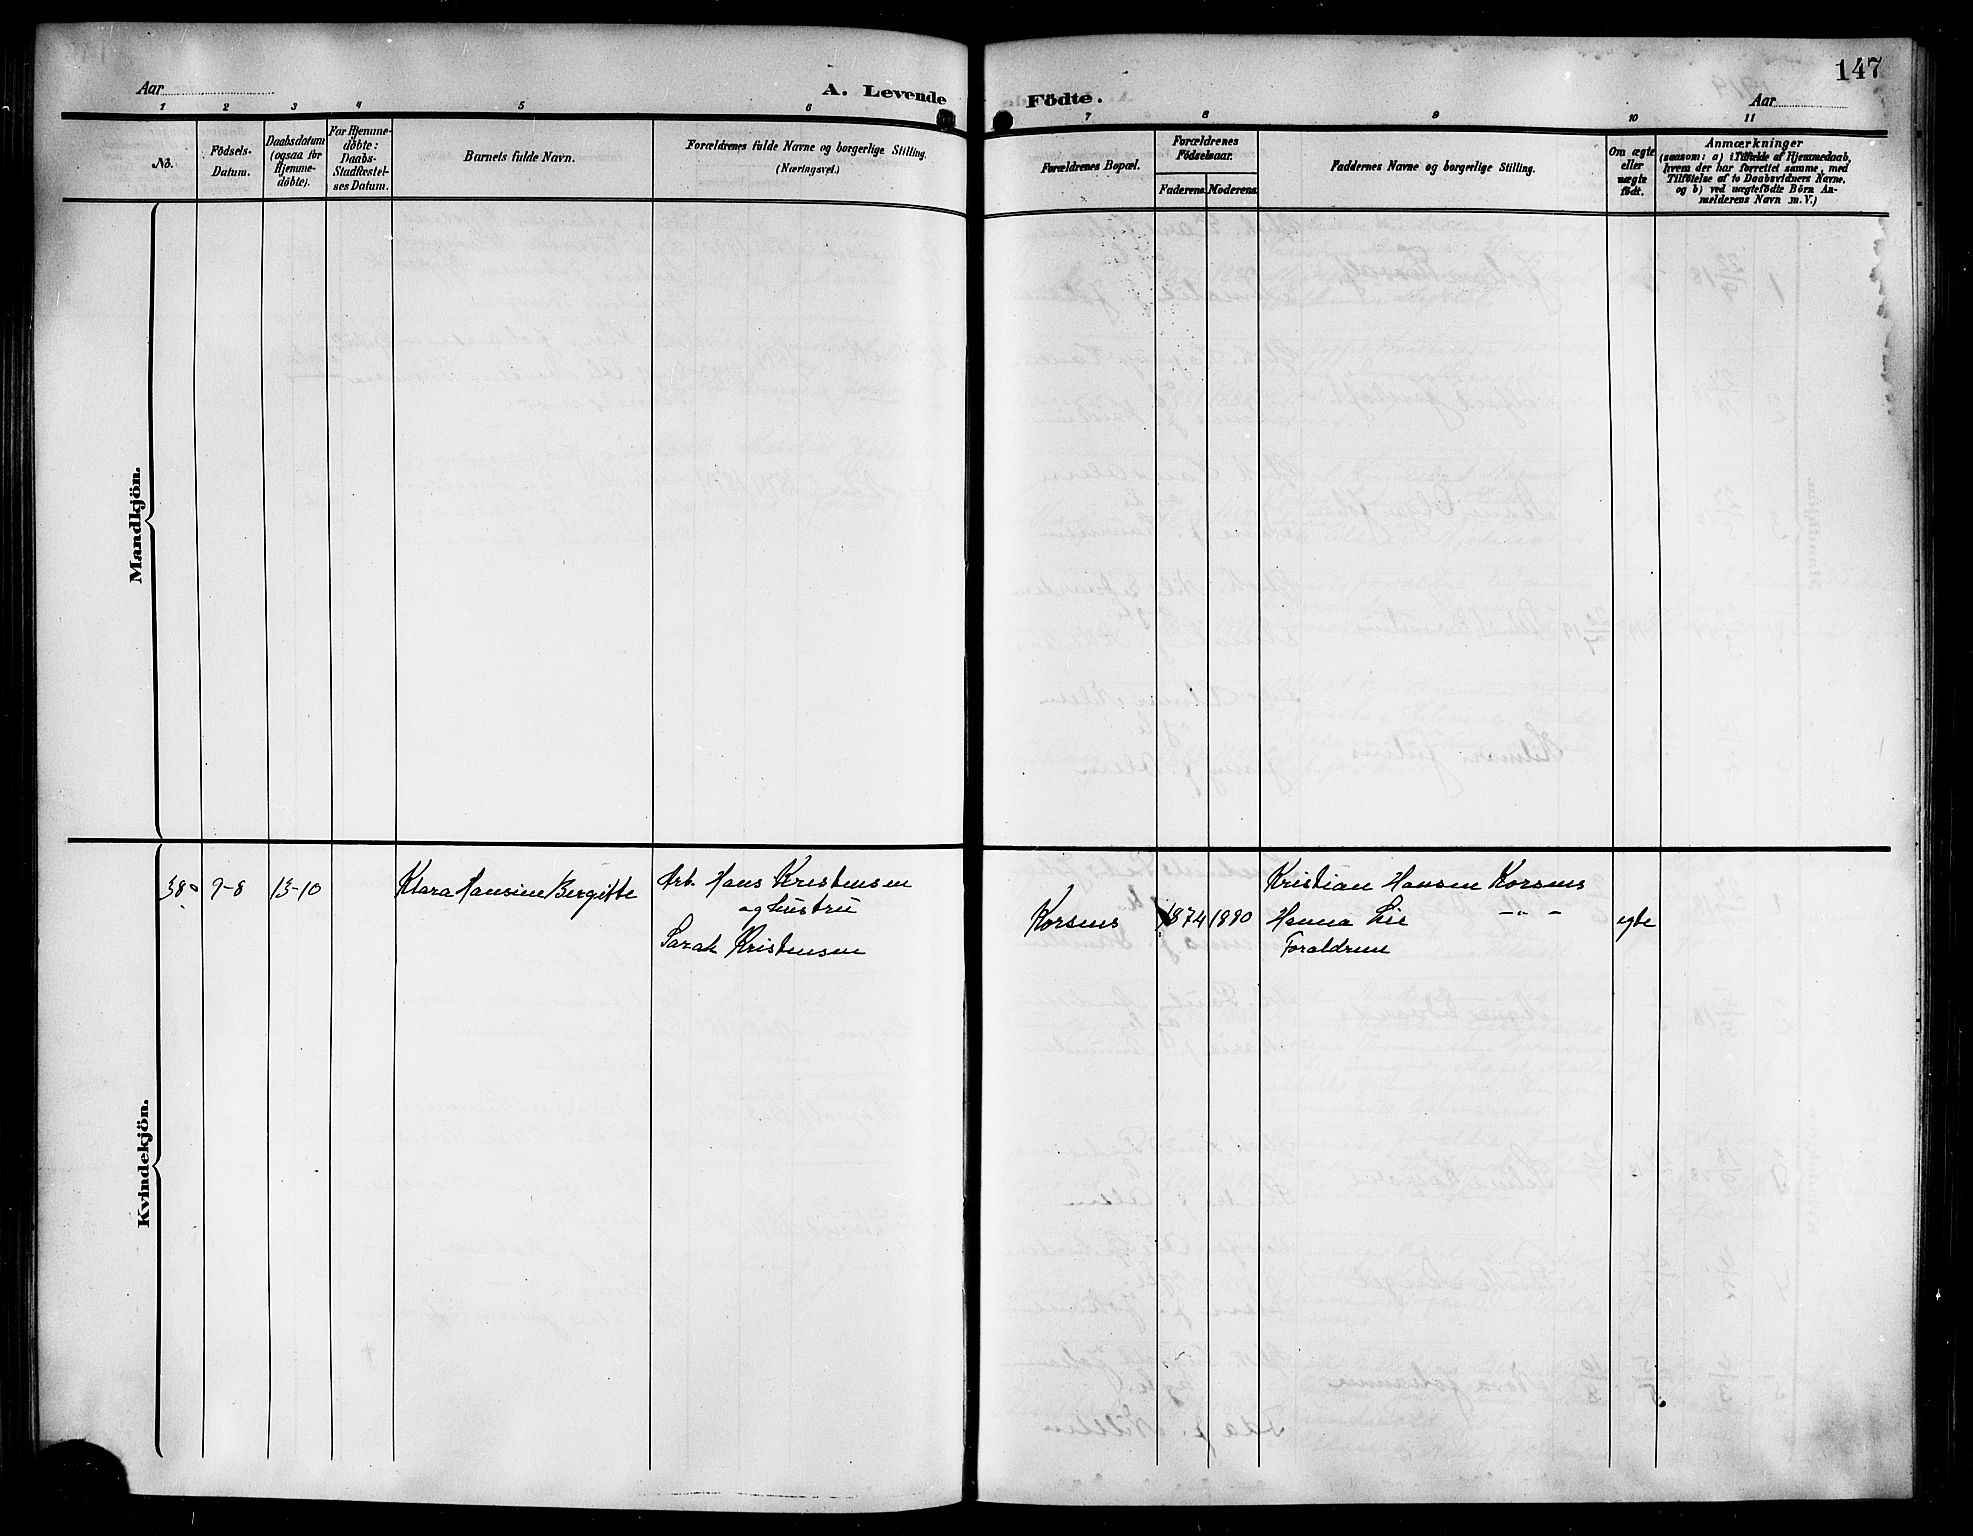 147
Aar
A. Levende
Födte.
Aar
1 2 3 4 5 6 7 8 9 10 11
No.
Födsels-
Datum.
Daabsdatum
(ogsaa for
Hjemme-
döbte).
For Hjemme-
döbte:
Daabs-
Stadfæstel-
ses Datum.
Barnets fulde Navn.
Forældrenes fulde Navne og borgerlige Stilling.
(Næringsvei.)
Forældrenes Bopæl.
Forældrenes
Födselsaar.
Faderens.
Moderens.
Faddernes Navne og borgerlige Stilling.
Om ægte
eller
uægte
födt.
Anmærkninger
(saasom: a) i Tilfælde af Hjemmedaab,
hvem der har forrettet samme, med
Tilföielse af to Daabsvidners Navne,
og b) ved uægtefödte Börn An-
melderens Navn m. V.)
Mandkjön.
Kvindekjön.
38 9-8 13-10 Klara Hansine Bergitte
Arb. Hans Kristensen
og hustru
Sarah Kristensen
Korsnes 1874 1880
Kristian Hansen Korsnes
Hanna Lie -"-
Foraldrene
egte